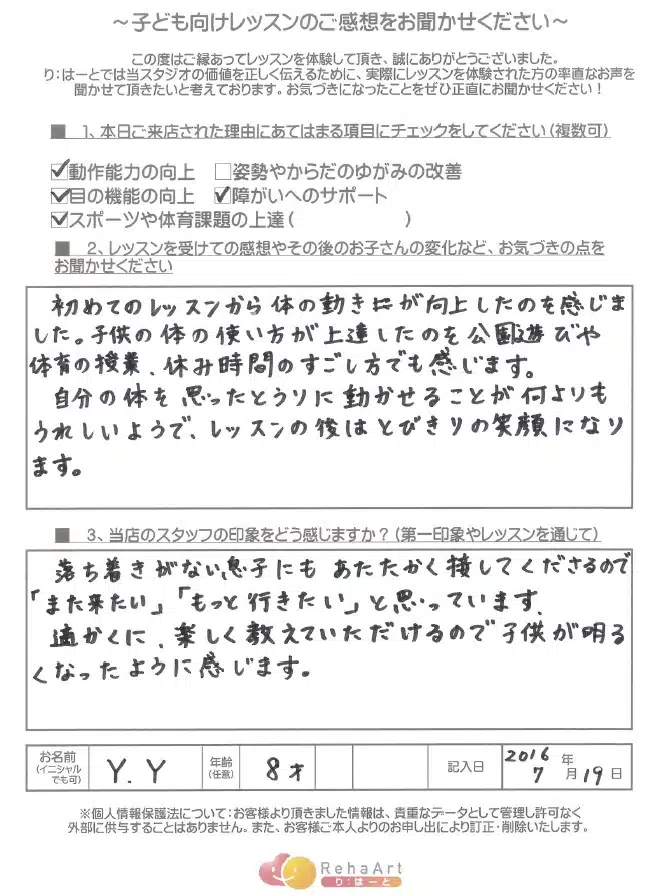 ～子ども向けレッスンのご感想をお聞かせください～
この度はご縁あってレッスンを体験して頂き、誠にありがとうございました。
り:はーとでは当スタジオの価値を正しく伝えるために、実際にレッスンを体験された方の率直なお声を
聞かせて頂きたいと考えております。お気づきになったことをぜひ正直にお聞かせください！
■ 1、本日ご来店された理由にあてはまる項目にチェックをしてください(複数可)
☑動作能力の向上 □姿勢やからだのゆがみの改善
☑目の機能の向上 ☑障がいへのサポート
☑スポーツや体育課題の上達( )
■ 2、レッスンを受けての感想やその後のお子さんの変化など、お気づきの点を
お聞かせください
初めてのレッスンから体の動きが向上したのを感じま
した。子供の体の使い方が上達したのを公園遊びや
体育の授業、休み時間のすごし方でも感じます。
自分の体を思ったとうりに動かせることが何よりも
うれしいようで、レッスンの後はとびきりの笑顔になり
ます。
■ 3、当店のスタッフの印象をどう感じますか？(第一印象やレッスンを通じて)
落ち着きがない息子にもあたたかく接してくださるので
「また来たい」「もっと行きたい」と思っています。
適かくに、楽しく教えていただけるので子供が明る
くなったように感じます。
お名前
(イニシャル
でも可)
Y.Y
年齢
(任意)
8才
記入日
2016年
7月19日
※個人情報保護法について：お客様より頂きました情報は、貴重なデータとして管理し許可なく
外部に供与することはありません。また、お客様ご本人よりのお申し出により訂正・削除いたします。
RehaArt
り:はーと